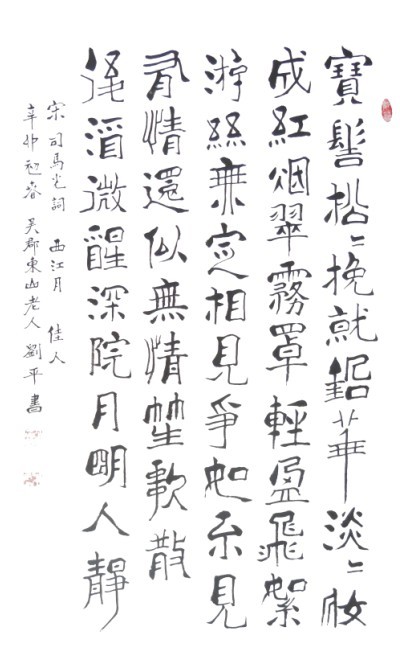 寶髻松〻挽就鉛華淡〻妝
成紅烟翠霧罩輕盈飛絮
游絲無定相見爭如不見
有情還似無情笙歌散
後酒微醒深院月明人靜
宋司馬光詞 西江月 佳人
辛卯初春 吳郡東山老人 劉平書